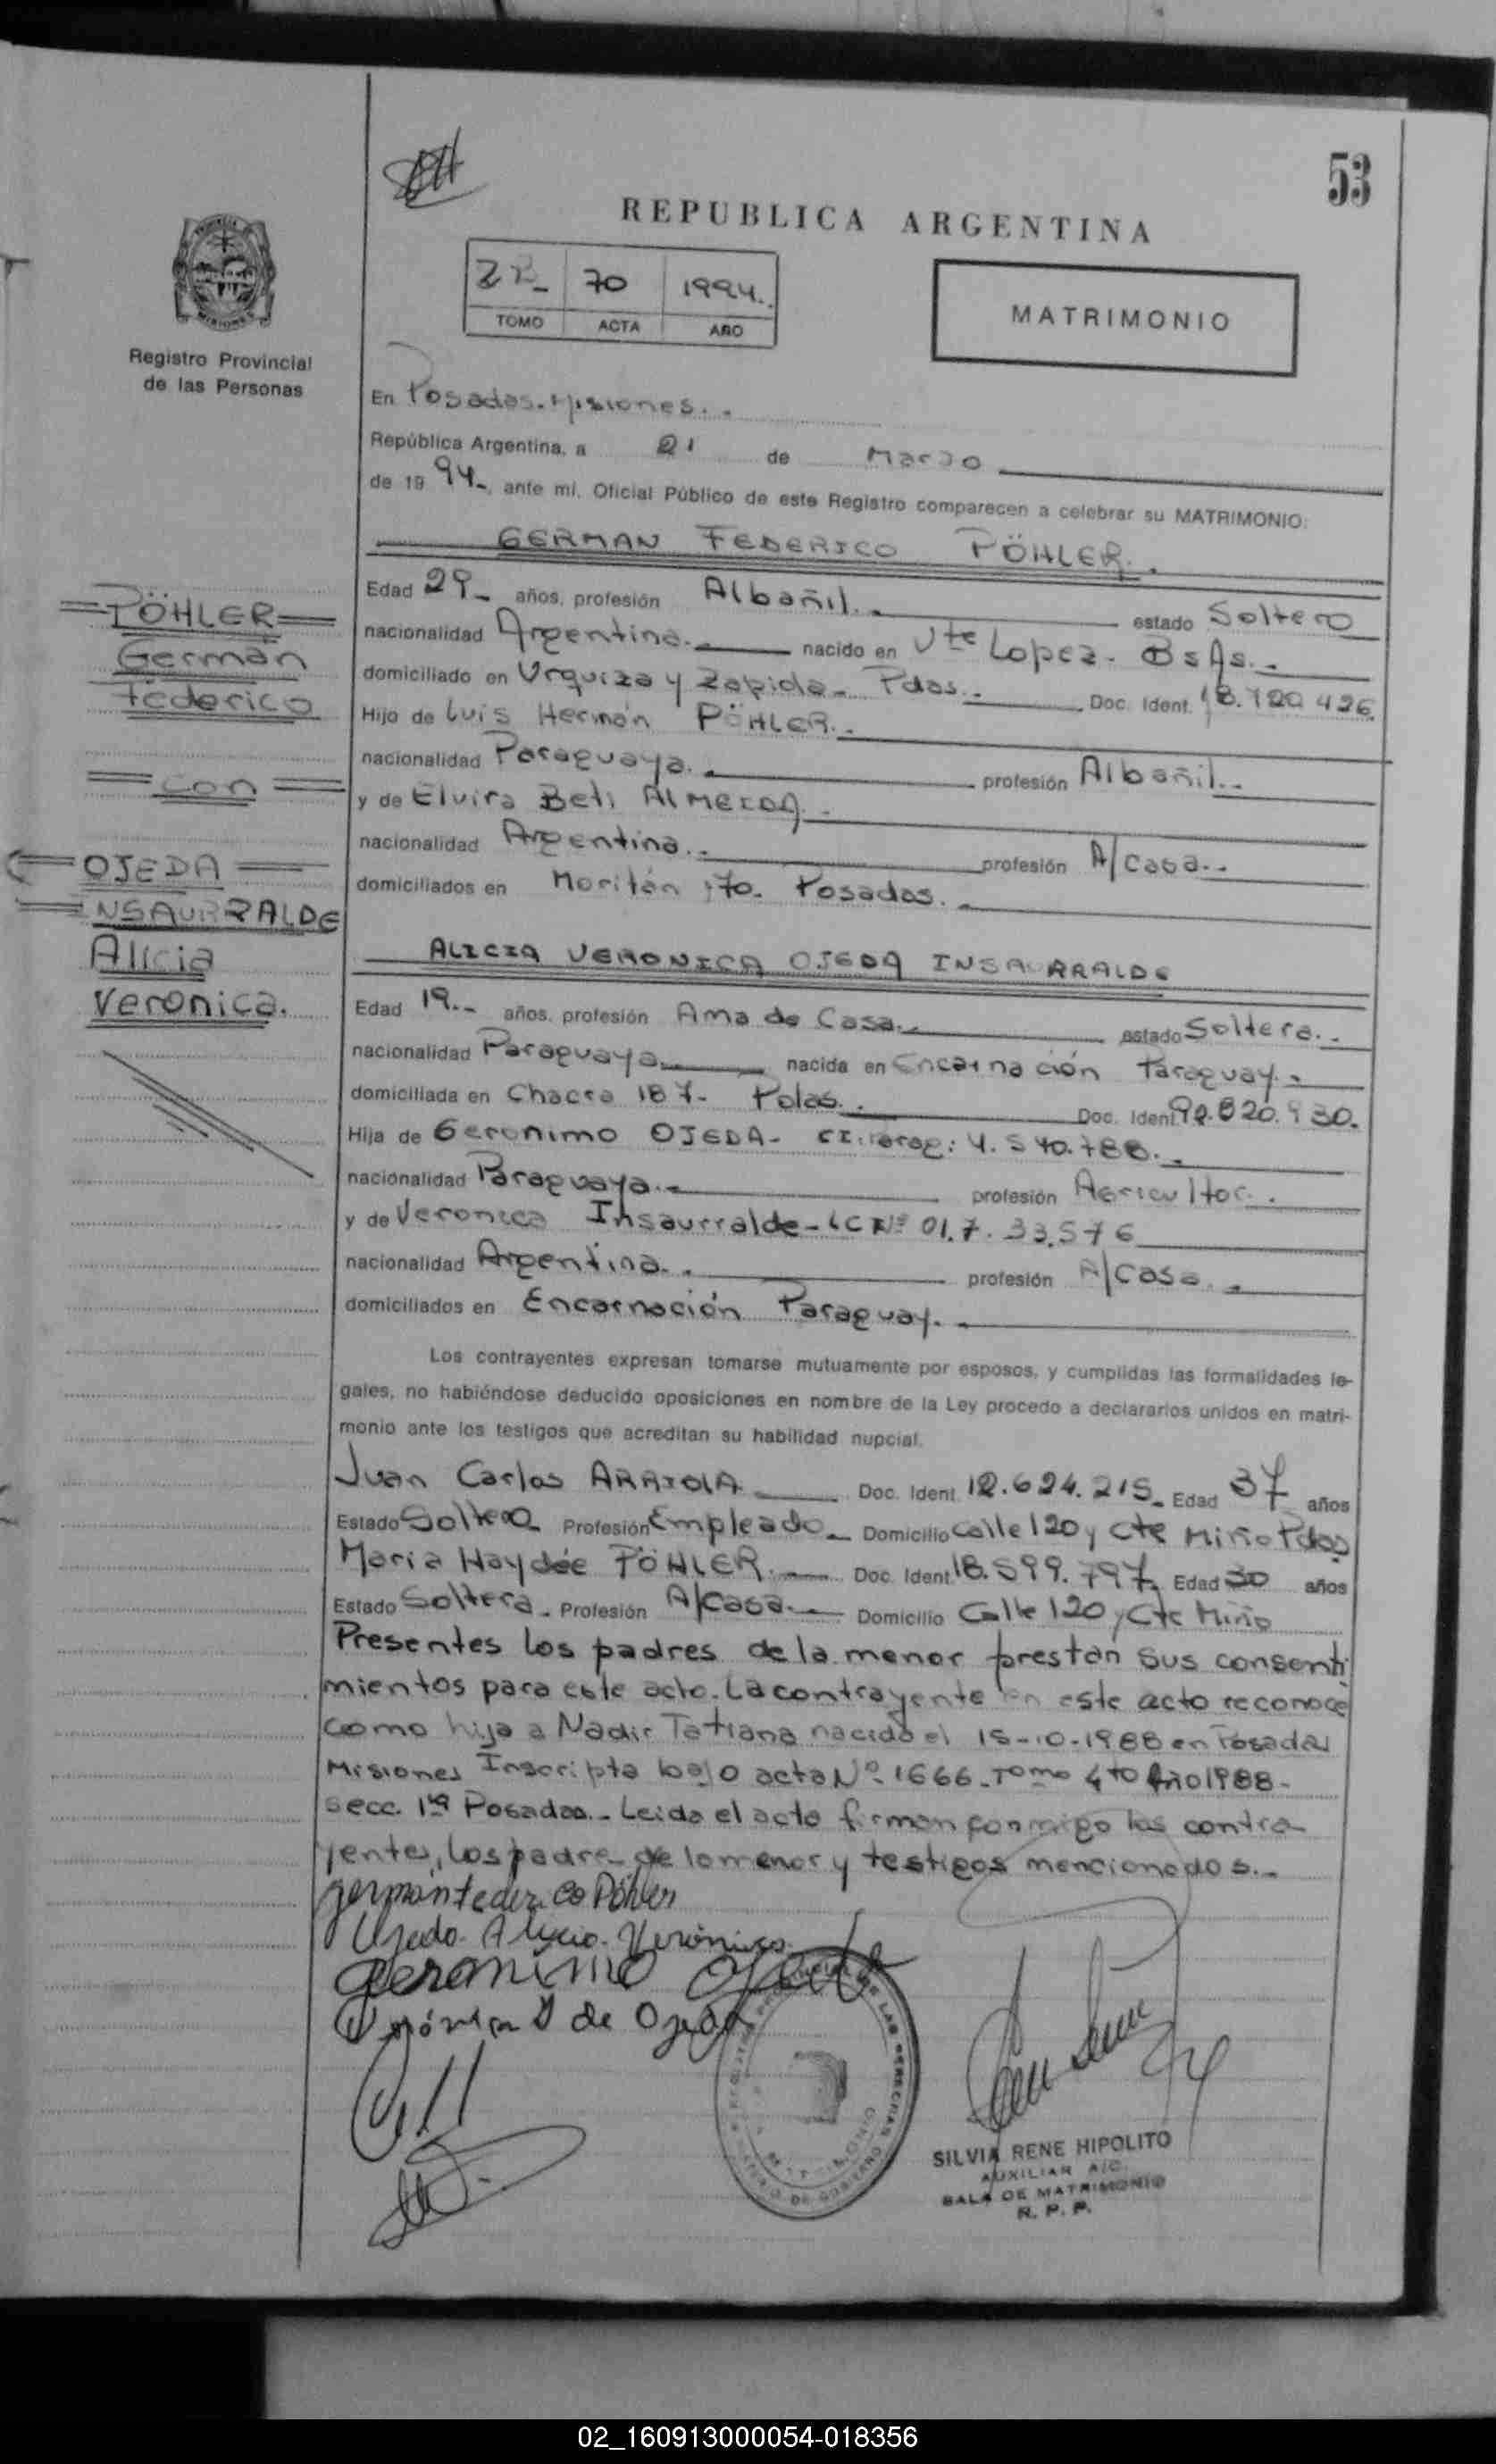 53
REPUBLICA ARGENTINA
70 1994..
TOMO ACTA AÑO
MATRIMONIO
Registro Provincial
de las Personas
En Posadas. Misiones..
República Argentina, a 21 de Marzo
de 19 94-, ante mi, Oficial Público de este Registro comparecen a celebrar su MATRIMONIO:
GERMAN FEDERICO PÖHLER.
PÖHLER
Germán
Federico
con
OJEDA
INSAURRALDE
Alicia
Veronica.
Edad 29- años, profesión Albañil. estado Soltero
nacionalidad Argentina. nacido en Vte Lopez. BsAs.
domiciliado en Urquiza y Zapiola- Pdas. Doc. Ident. 18.120.426
Hijo de Luis Hermán PÖHLER.
nacionalidad Paraguaya. profesión Albañil.
y de Elvira Beti ALMEIDA.
nacionalidad Argentina. profesión A/casa.
domiciliados en 170. Posadas.
ALICIA VERONICA OJEDA INSAURRALDE
Edad 19.- años, profesión Ama de Casa. estado Soltera.
nacionalidad Paraguaya nacida en Encarnación Paraguay.
domiciliada en Chacra 187- Pdas. Doc. Ident. 92.820.930.
Hija de Geronimo OJEDA- CI:Parag: 4.540.788.
nacionalidad Paraguaya. profesión Agricultor.
y de Veronica Insaurralde- LC Nº 01.7.33.576
nacionalidad Argentina. profesión A/Casa.
domiciliados en Encarnación Paraguay.
Los contrayentes expresan tomarse mutuamente por esposos, y cumplidas las formalidades le-
gales, no habiéndose deducido oposiciones en nombre de la Ley procedo a declararlos unidos en matri-
monio ante los testigos que acreditan su habilidad nupcial.
Juan Carlos ARRIOLA Doc. Ident. 12.624.215- Edad 37 años
Estado Soltero- Profesión Empleado- Domicilio Calle 120 y Cte Miño Pdas
Maria Haydée PÖHLER. Doc. Ident. 18.599.797. Edad 30 años
Estado Soltera- Profesión A/casa. Domicilio Calle 120 y Cte Miño
Presentes los padres de la menor prestan sus consenti
mientos para este acto. La contrayente en este acto reconoce
como hija a Nadir Tatiana nacida el 15-10-1988 en Posadas
Misiones Inscripta bajo acta Nº 1666. Tomo 4to Año 1988-
secc. 1ra Posadas.- Leida el acta firman conmigo los contra-
yentes, los padres de la menor y testigos mencionados.-
german federico Pöhler
Ojeda Alicia Verónica
Geronimo Ojeda
Verónica I de Ojeda
SILVIA RENE HIPOLITO
AUXILIAR A/C.
SALA DE MATRIMONIO
R. P. P.
02_160913000054-018356